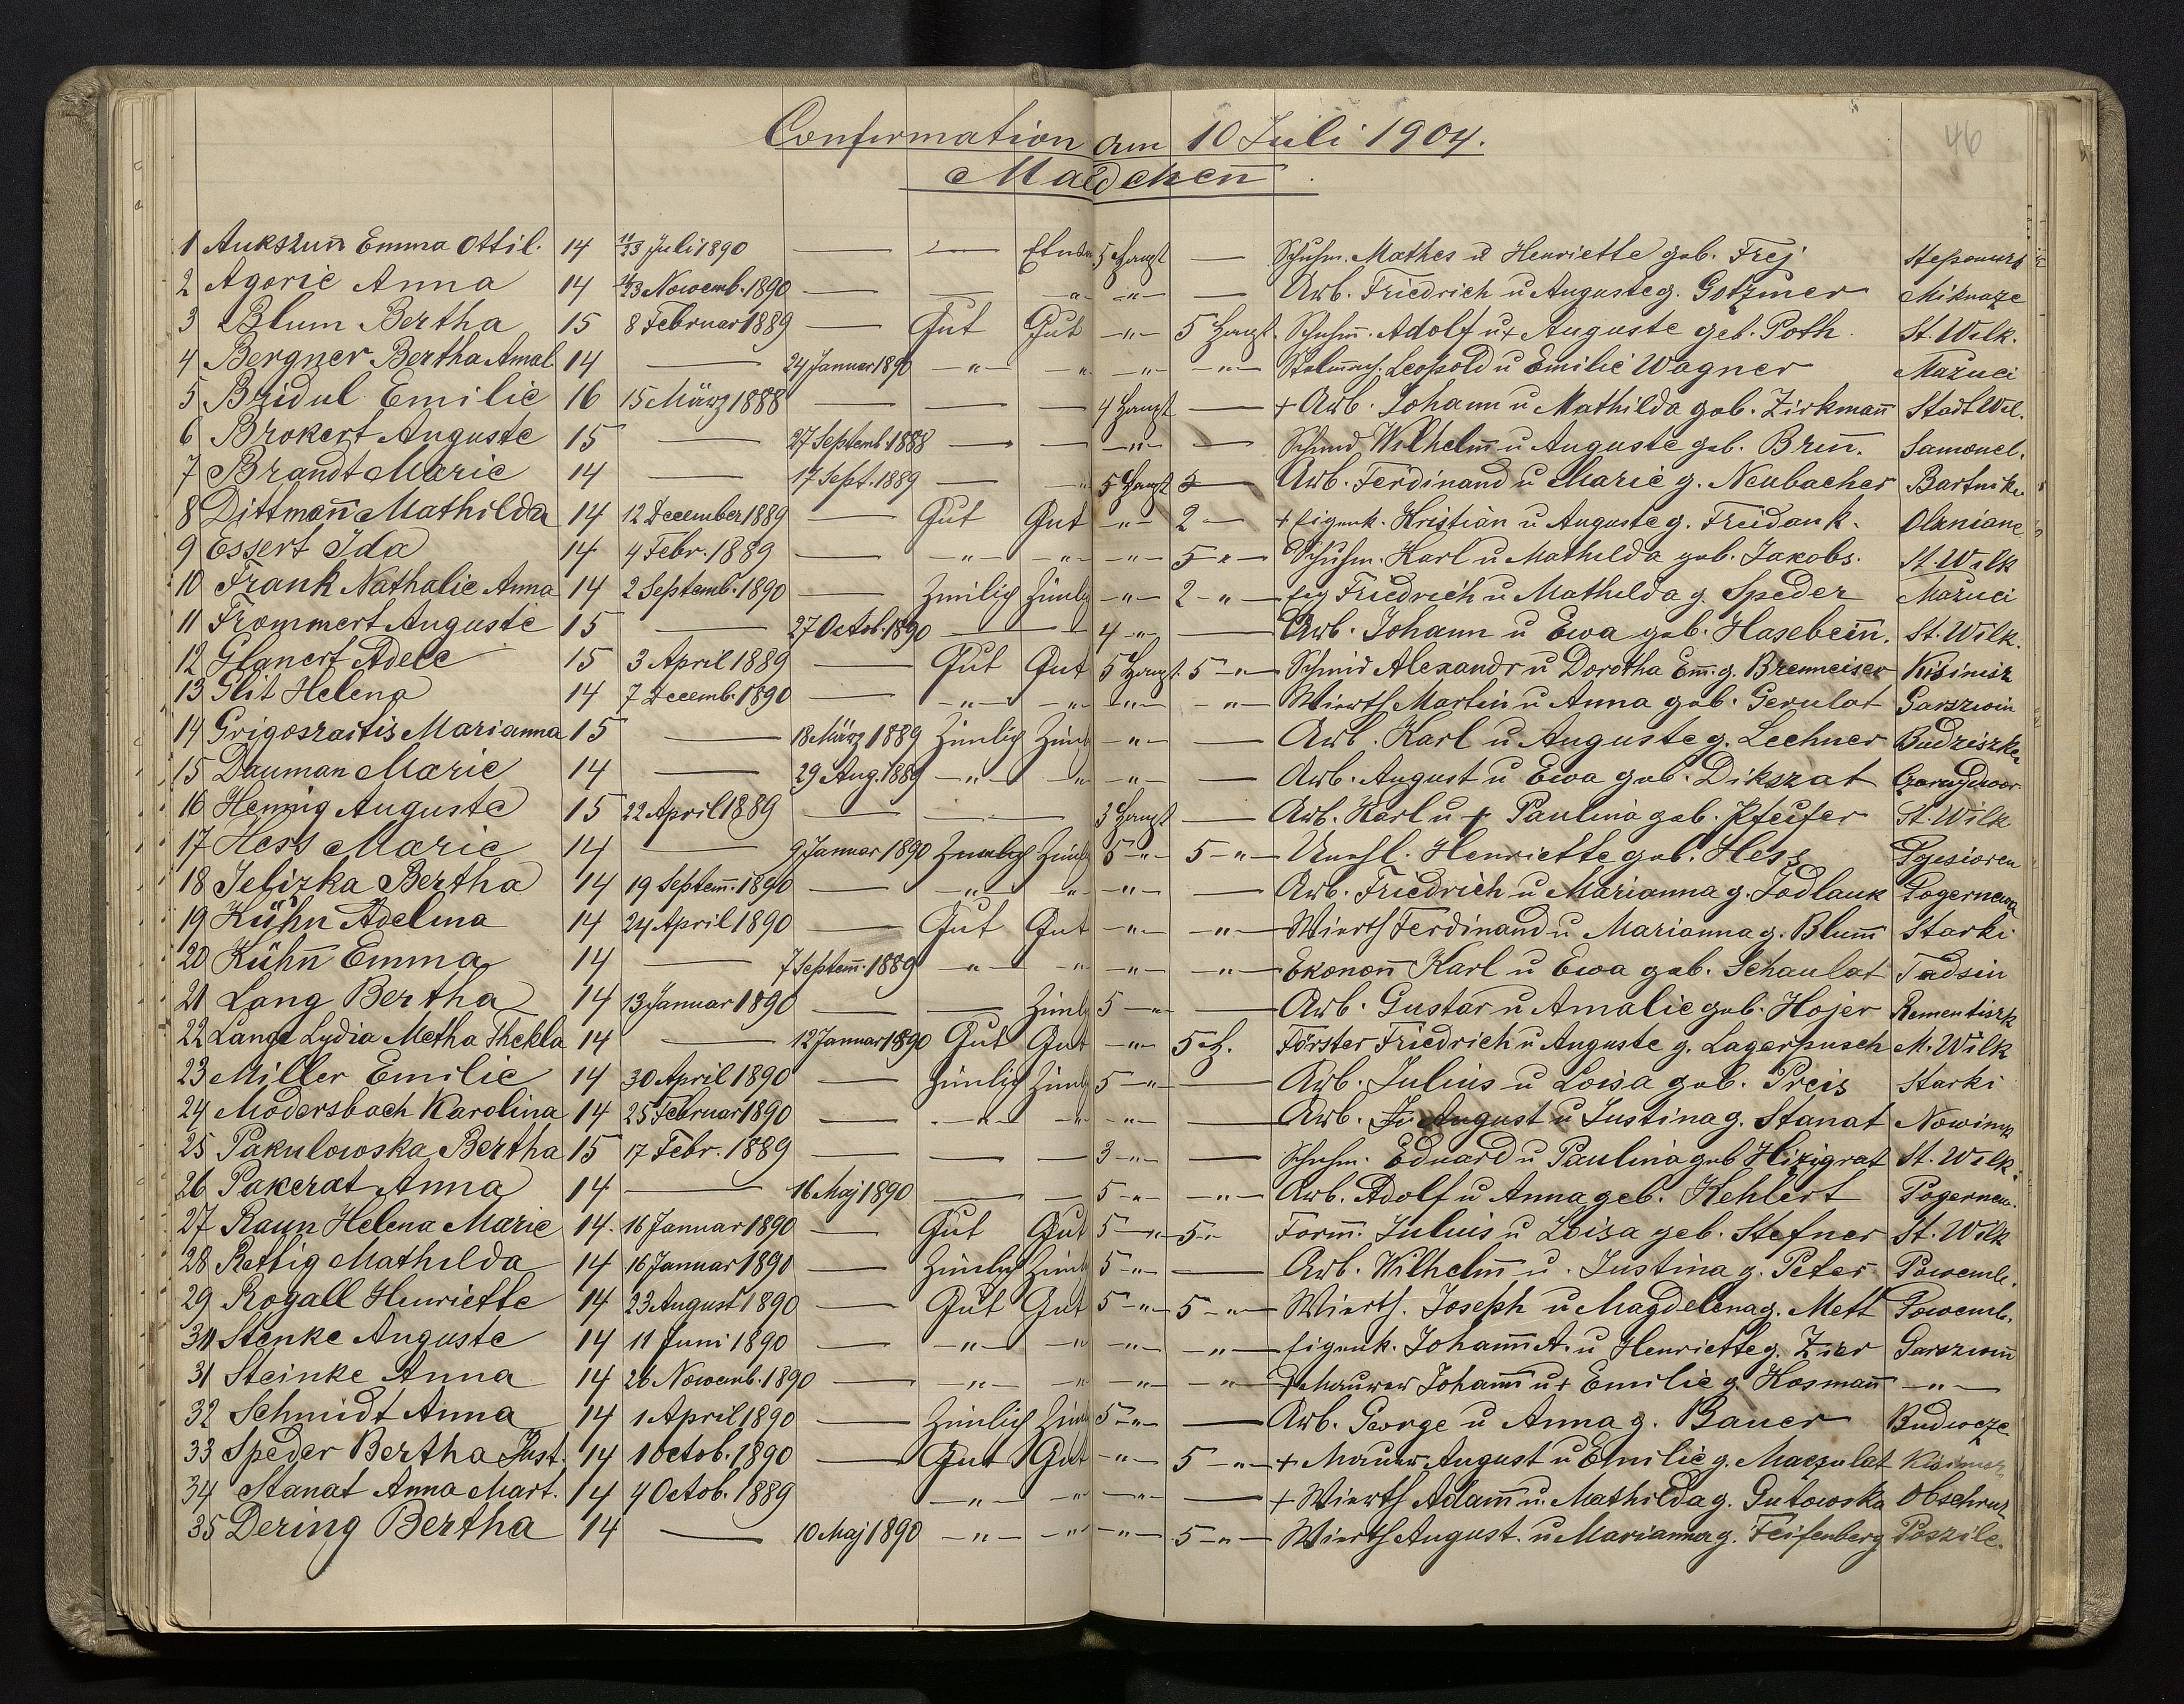 Confirmation am 10 Juli 1904.
46
Maedchen
1 Aukszun̄ Emma Ottil. 14 11/23 Juli 1890 — — 5 Haupt — Schuhm. Mathes u Henriette geb. Frej
2 Agorie Anna 14 Nowemb. 1890 — — -"- -"- — Arb. Friedrich u Auguste g. Gotzmer Miknaze
3 Blum Bertha 15 8 Februar 1889 — Gut Gut -"- 5 Haupt. Schuhm̄. Adolf u + Auguste geb. Poth. St. Wilk.
4 Bergner Bertha Amal 14 — 24 Januar 1890 -"- -"- -"- -"- Leopold u Emilie Wagner Mazuci
5 Bridul Emilie 16 15 März 1888 — — — 4 Haupt — + Arb. Johann u Mathilda geb. Zirkman̄ Stadt Wil.
6 Brokert Auguste 15 — 27 Septemb. 1888 — — -"- — Schmid Wilhelm̄ u Auguste geb. Brun̄. Samonel.
7 Brandt Marie 14 — 17 Sept. 1889 — -"- 5 Haupt — Arb. Ferdinand u Marie g. Neubacher Bartnik
8 Dittman̄ Mathilda 14 12 December 1889 — Gut Gut -"- 2 — + Eigenk. Kristian u Auguste g. Freidank. Olxniane
9 Essert Ida 14 4 Febr. 1889 — -"- -"- -"- 5 -"- Schuhm. Karl u Mathilda geb. Jakobs. St. Wilk
10 Frank Nathalie Anna 14 2 Septemb. 1890 — Zimlich Zimlich -"- 2 -"- Eig Friedrich u Mathilda g. Speder Mazuci
11 Frommert Auguste 15 — 27 Octob. 1890 — — 4 -"- — Arb. Johann u Ewa geb. Hasebein̄. St. Wilk.
12 Glanert Adele 15 3 April 1889 — Gut Gut 5 Haupt. 5 -"- Schmid Alexandr u Dorotha Em̄. g. Brenneiser Kisinisz
13 Glit Helena 14 7 Decemb. 1890 — -"- -"- -"- -"- Wierth Martin u Anna geb. Gerulat Garszwin
14 Grigoszaitis Marianna 15 — 18 März 1889 Zimlich Zimli -"- — Arb. Karl u Auguste g. Lechner Budziszke
15 Dauman Marie 14 — 29 Aug. 1889 -"- -"- -"- — Arb. August u Ewa geb. Dikszat
16 Hennig Auguste 15 22 April 1889 — — — 3 Haupt — Arb. Karl u + Paulina geb. Pfeifer St. Wilk
17 Hess Marie 14 — 9 Januar 1890 Zimlich Zimli 5 -"- 5 -"- Henriette geb. Hess Pojesioren
18 Jelizka Bertha 14 19 Septem̄. 1890 — -"- -"- -"- — Arb. Friedrich u Marianna g. Jodlauk Pogerneva
19 Kühn Adelina 14 24 April 1890 — Gut Gut -"- -"- Wierth Ferdinand u Marianna g. Blum̄ Starki
20 Kühn̄ Emma 14 — 7 Septem̄. 1889 -"- -"- -"- -"- Ekonon̄ Karl u Ewa geb. Schaulat Tadsin
21 Lang Bertha 14 13 Januar 1890 — — Zimli 5 -"- — Arb. Gustav u Amalie geb. Hojer Rementiszk
22 Lange Lydia Metha Thekla 14 — 12 Januar 1890 Gut Gut -"- 5 H. Förster Friedrich u Auguste g. Lagerpusch M. Wilk
23 Miller Emilie 14 30 April 1890 — Zimlich Zimli 5 -"- — Arb. Julius u Loisa geb. Preis Starki
24 Modersbach Karolina 14 25 Februar 1890 — -"- -"- -"- — Arb. August u Justina g. Stanat Nowinik
25 Pakulowska Bertha 15 17 Febr. 1889 — — — 3 -"- — Schuhm. Eduard u Paulina geb Hizigrat St. Wilk.
26 Pakerat Anna 14 — 16 Maj 1890 — — 5 -"- -"- Arb. Adolf u Anna geb. Kehlert Pogerneu.
27 Raun Helena Marie 14. 16 Januar 1890 — Gut Gut 5 -"- 5 -"- Form̄. Julius u Loisa geb. Stefner St. Wilk
28 Rettig Mathilda 14 16 Januar 1890 — Zimlich Zimli 5 -"- — Arb. Wilhelm̄ u. Justina g. Peter Powemb.
29 Rogall Henriette 14 23 August 1890 — Gut Gut 5 -"- 5 -"- Wierth. Joseph u Magdelena g. Mett Powemb.
30 Stenke Auguste 14 11 Juni 1890 — -"- -"- -"- -"- Eigenk. Johan̄ A. u Henriette g. Zier Garszwin̄
31 Steinke Anna 14 26 Nowemb. 1890 — -"- -"- -"- -"- + Maurer Johan̄ u + Emilie g. Kosman̄ -"-
32 Schmidt Anna 14 1 April 1890 — Zimlich Zimli 5 -"- — Arb. George u Anna g. Bauer Budweze
33 Speder Bertha Just. 14 1 Octob. 1890 — Gut Gut -"- 5 -"- + Maurer August u Emilie g. Maczulat Kisinisz
34 Stanat Anna Mart. 14 4 Octob. 1889 -"- -"- -"- — + Wierth Adam̄ u. Mathilda g. Gutowska Obschrut
35 Dering Bertha 14 — 10 Maj 1890 -"- -"- -"- 5 -"- Wierth August u Marianna g. Feifenberg Poszile.